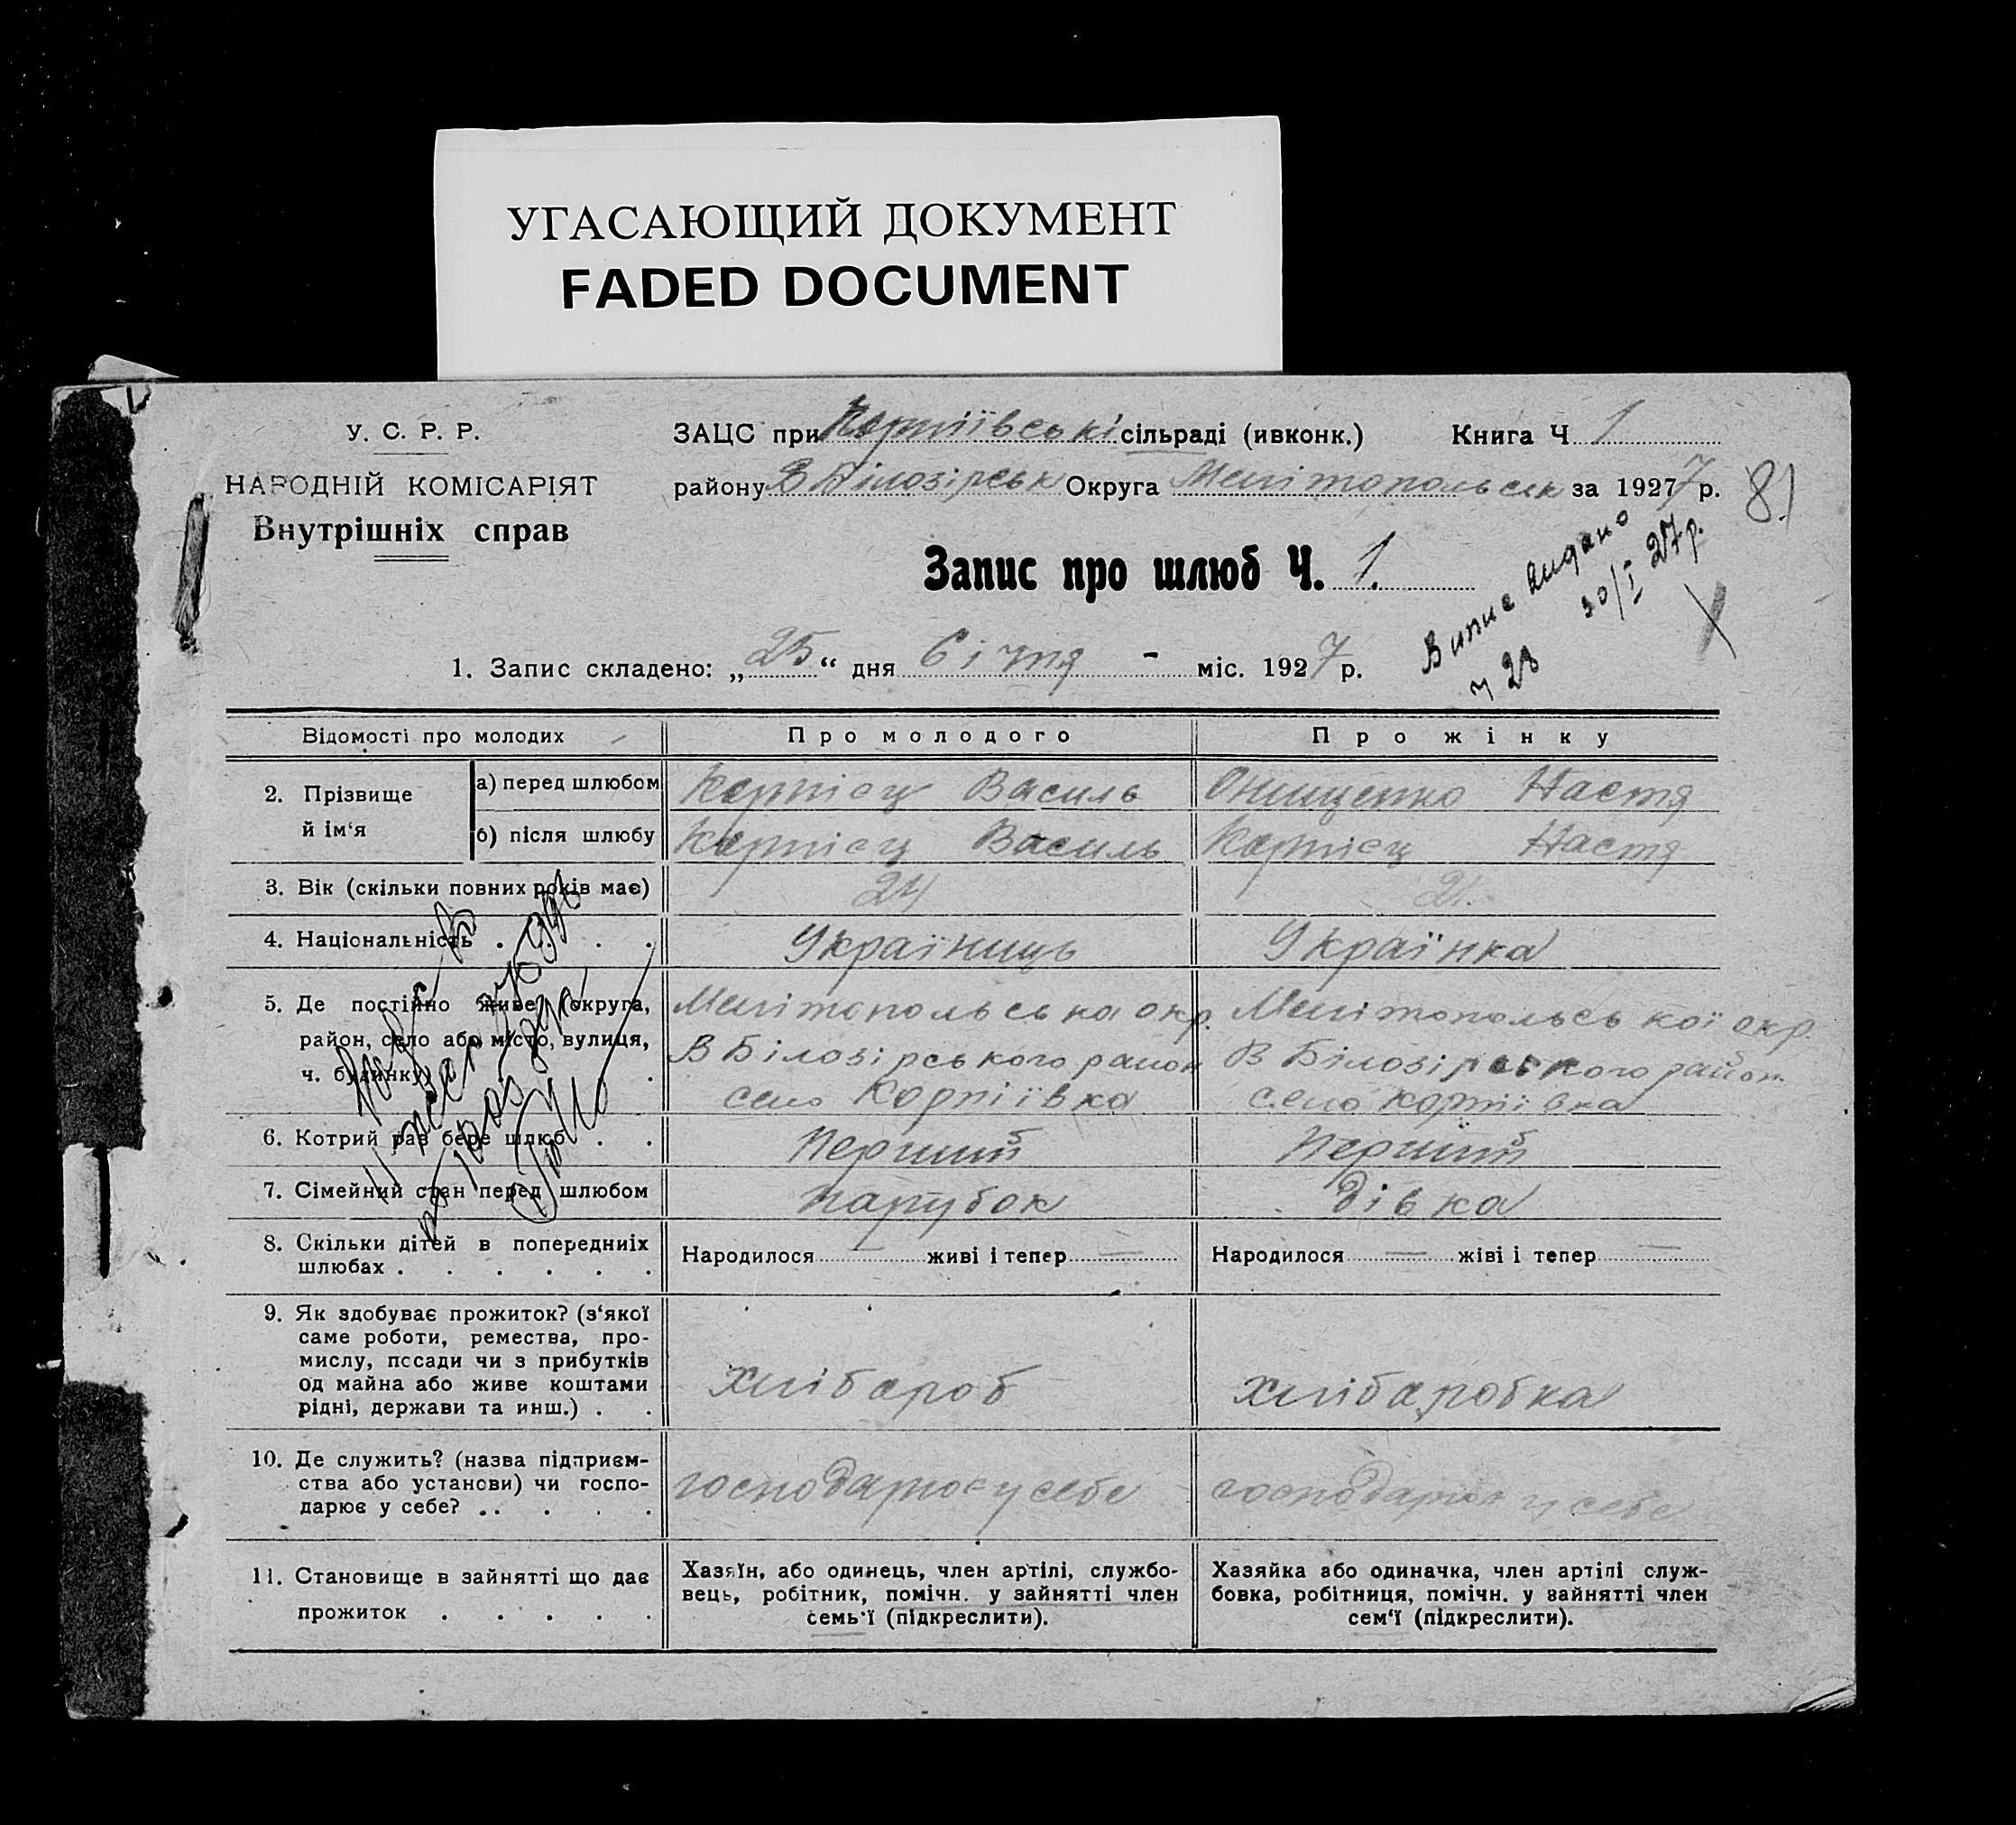 УГАСАЮЩИЙ ДОКУМЕНТ
FADED DOCUMENT
У. С. Р. Р.
НАРОДНІЙ КОМІСАРІЯТ
Внутрішніх справ
ЗАЦС при Корніївські сільраді (ивконк.) Книга Ч 1
району В Білозірськ Округа Мелітопольськ за 1927 7 р.
81
Запис про шлюб Ч. 1.
Випис видано
30/I 27 р.
ч 23
1. Запис складено: „25“ дня Січня - міс. 1927 р.
Відомості про молодих Про молодого Про жінку
2. Прізвище й ім‘я
а) перед шлюбом Корнієц Василь Онищенко Настя
б) після шлюбу Корнієц Василь Корнієц Настя
3. Вік (скільки повних років має) 21
4. Національність . . . . Україниць Українка
5. Де постійно живе (округа,
район, село або місто, вулиця,
ч. будинку) .
Мелітопольська окр.
В Білозірського район
село Корніївка
Мелітопольської окр.
В Білозірського район.
село Корніївка
6. Котрий раз бере шлюб . . Перший Перший
7. Сімейний стан перед шлюбом парубок дівка
8. Скільки дітей в попередниіх
шлюбах . . . . . .
Народилося — живі і тепер —
Народилося — жіві і тепер —
9. Як здобуває прожиток? (з‘якої
саме роботи, ремества, про-
мислу, посади чи з прибутків
од майна або живе коштами
рідні, держави та инш.) . .
хлібароб хлібаробка
10. Де служить? (назва підприєм-
ства або установи) чи госпо-
дарює у себе? . . . . .
господарює у себе господарює у себе
11. Становище в зайнятті що дає
прожиток . . . . .
Хазяїн, або одинець, член артілі, службо-
вець, робітник, помічн. у зайнятті член
семь‘ї (підкреслити).
Хазяйка або одиначка, член артілі служ-
бовка, робітниця, помічн. у зайнятті член
сем‘ї (підкреслити).